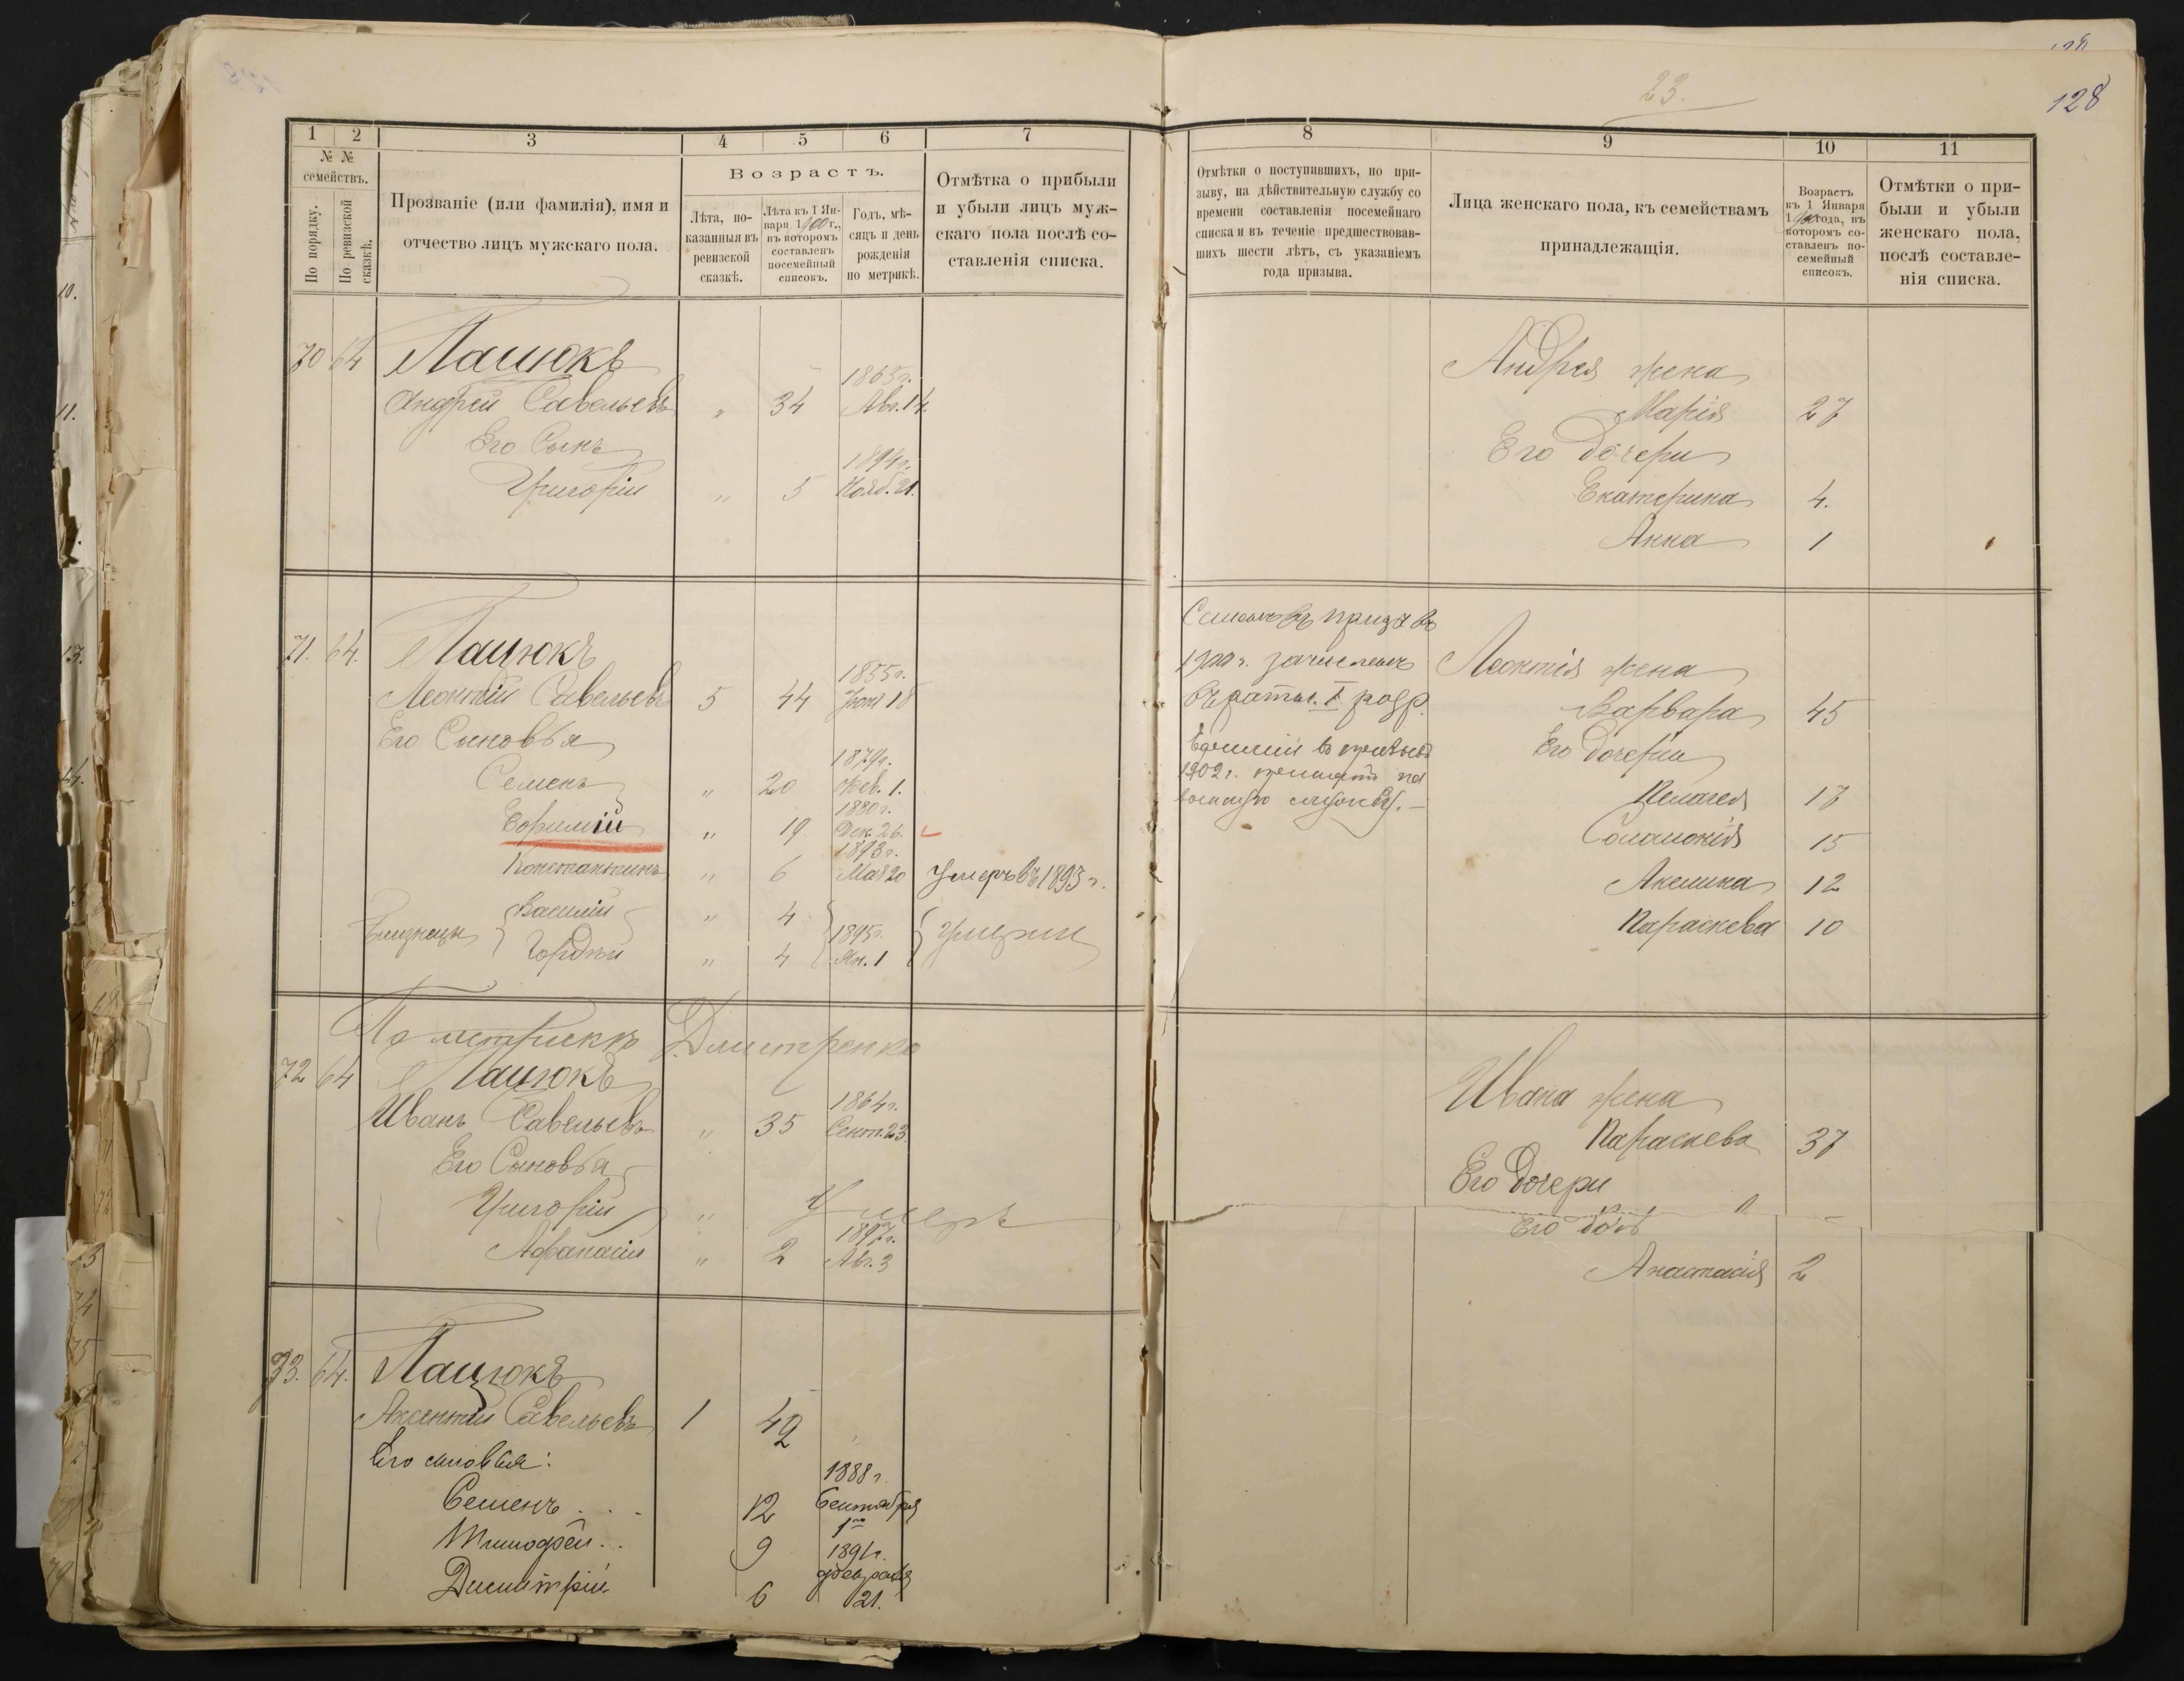 23.
128
1 2 3 4 5 6 7
№ №
семействъ.
По порядку.
По ревизской сказкѣ.
Прозваніе (или фамилія), имя и
отчество лицъ мужскаго пола.
Возрастъ.
Лѣта, по-
казанныя въ
ревизской
сказкѣ.
Лѣта къ 1 Ян-
варя 1900 г.,
въ которомъ
составленъ
посемейный
списокъ.
Годъ, мѣ-
сяцъ и день
рожденія
по метрикѣ.
Отмѣтка о прибыли
и убыли лицъ муж-
скаго пола послѣ со-
ставленія списка.
70 64 Пацюкъ
1865г.
Андрей Савельевъ " 34 Авг. 14.
Его Сынъ
1894г.
Григорій " 5 Нояб. 21.
71. 64. Пацюкъ
1855г.
Леонтій Савельевъ 5 44 18
Его Сыновья
1879г.
Семенъ " 20 Фев. 1.
1880г.
Ефимій " 19 Дек. 26.
1893г.
Константинъ " 6 Мая 20 Умеръ въ 1893 г.
Близнецы
Василій " 4
1895г.
Гордѣй " 4 Ян. 1 Умерли
По метрикѣ Дмитренко
72 64 Пацюкъ
1864г.
Иванъ Савельевъ " 35 Сент. 23.
Его Сыновья
Григорій " Умеръ
1897г.
Афанасій " 2 Авг. 3
73. 64. Пацюкъ
Аксентій Савельевъ 1 42
Его сыновья:
1888 г.
Семенъ . . . 12 Сентября
1го
Тимофей . . 9 1891г.
февраля
Дмитрій 6 21.
8 9 10 11
Отмѣтки о поступившихъ, по при-
зыву, на дѣйствительную службу со
времени составленія посемейнаго
списка и въ теченіе предшествовав-
шихъ шести лѣтъ, съ указаніемъ
года призыва.
Лица женскаго пола, къ семействамъ
принадлежащія.
Возрастъ
къ 1 Января
1900 года, въ
которомъ со-
ставленъ по-
семейный
списокъ.
Отмѣтки о при-
были и убыли
женскаго пола,
послѣ составле-
нія списка.
Андрея жена
Марія 27
Его дочери
Екатерина 4.
Анна 1
Семенъ въ призывъ
1900 г. зачисленъ
въ ратн. I разр.
Ефимій въ призывъ
1902 г. принятъ на
военную службу. —
Леонтія жена
Варвара 45
Его дочери
Пелагея 17
Соломонія 15
Акилина 12
Параскева 10
Ивана жена
Параскева 37
Его дочери
Его дочь
Анастасія 2